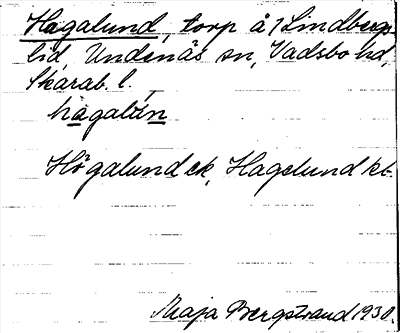 Hagalund, torp å 1 Lindbergs-
lid, Undenäs sn, Vadsbo hd,
Skarab. l.
hagalu̇n
Högalund ek, Hagelund kb.
Maja Bergstrand 1930.